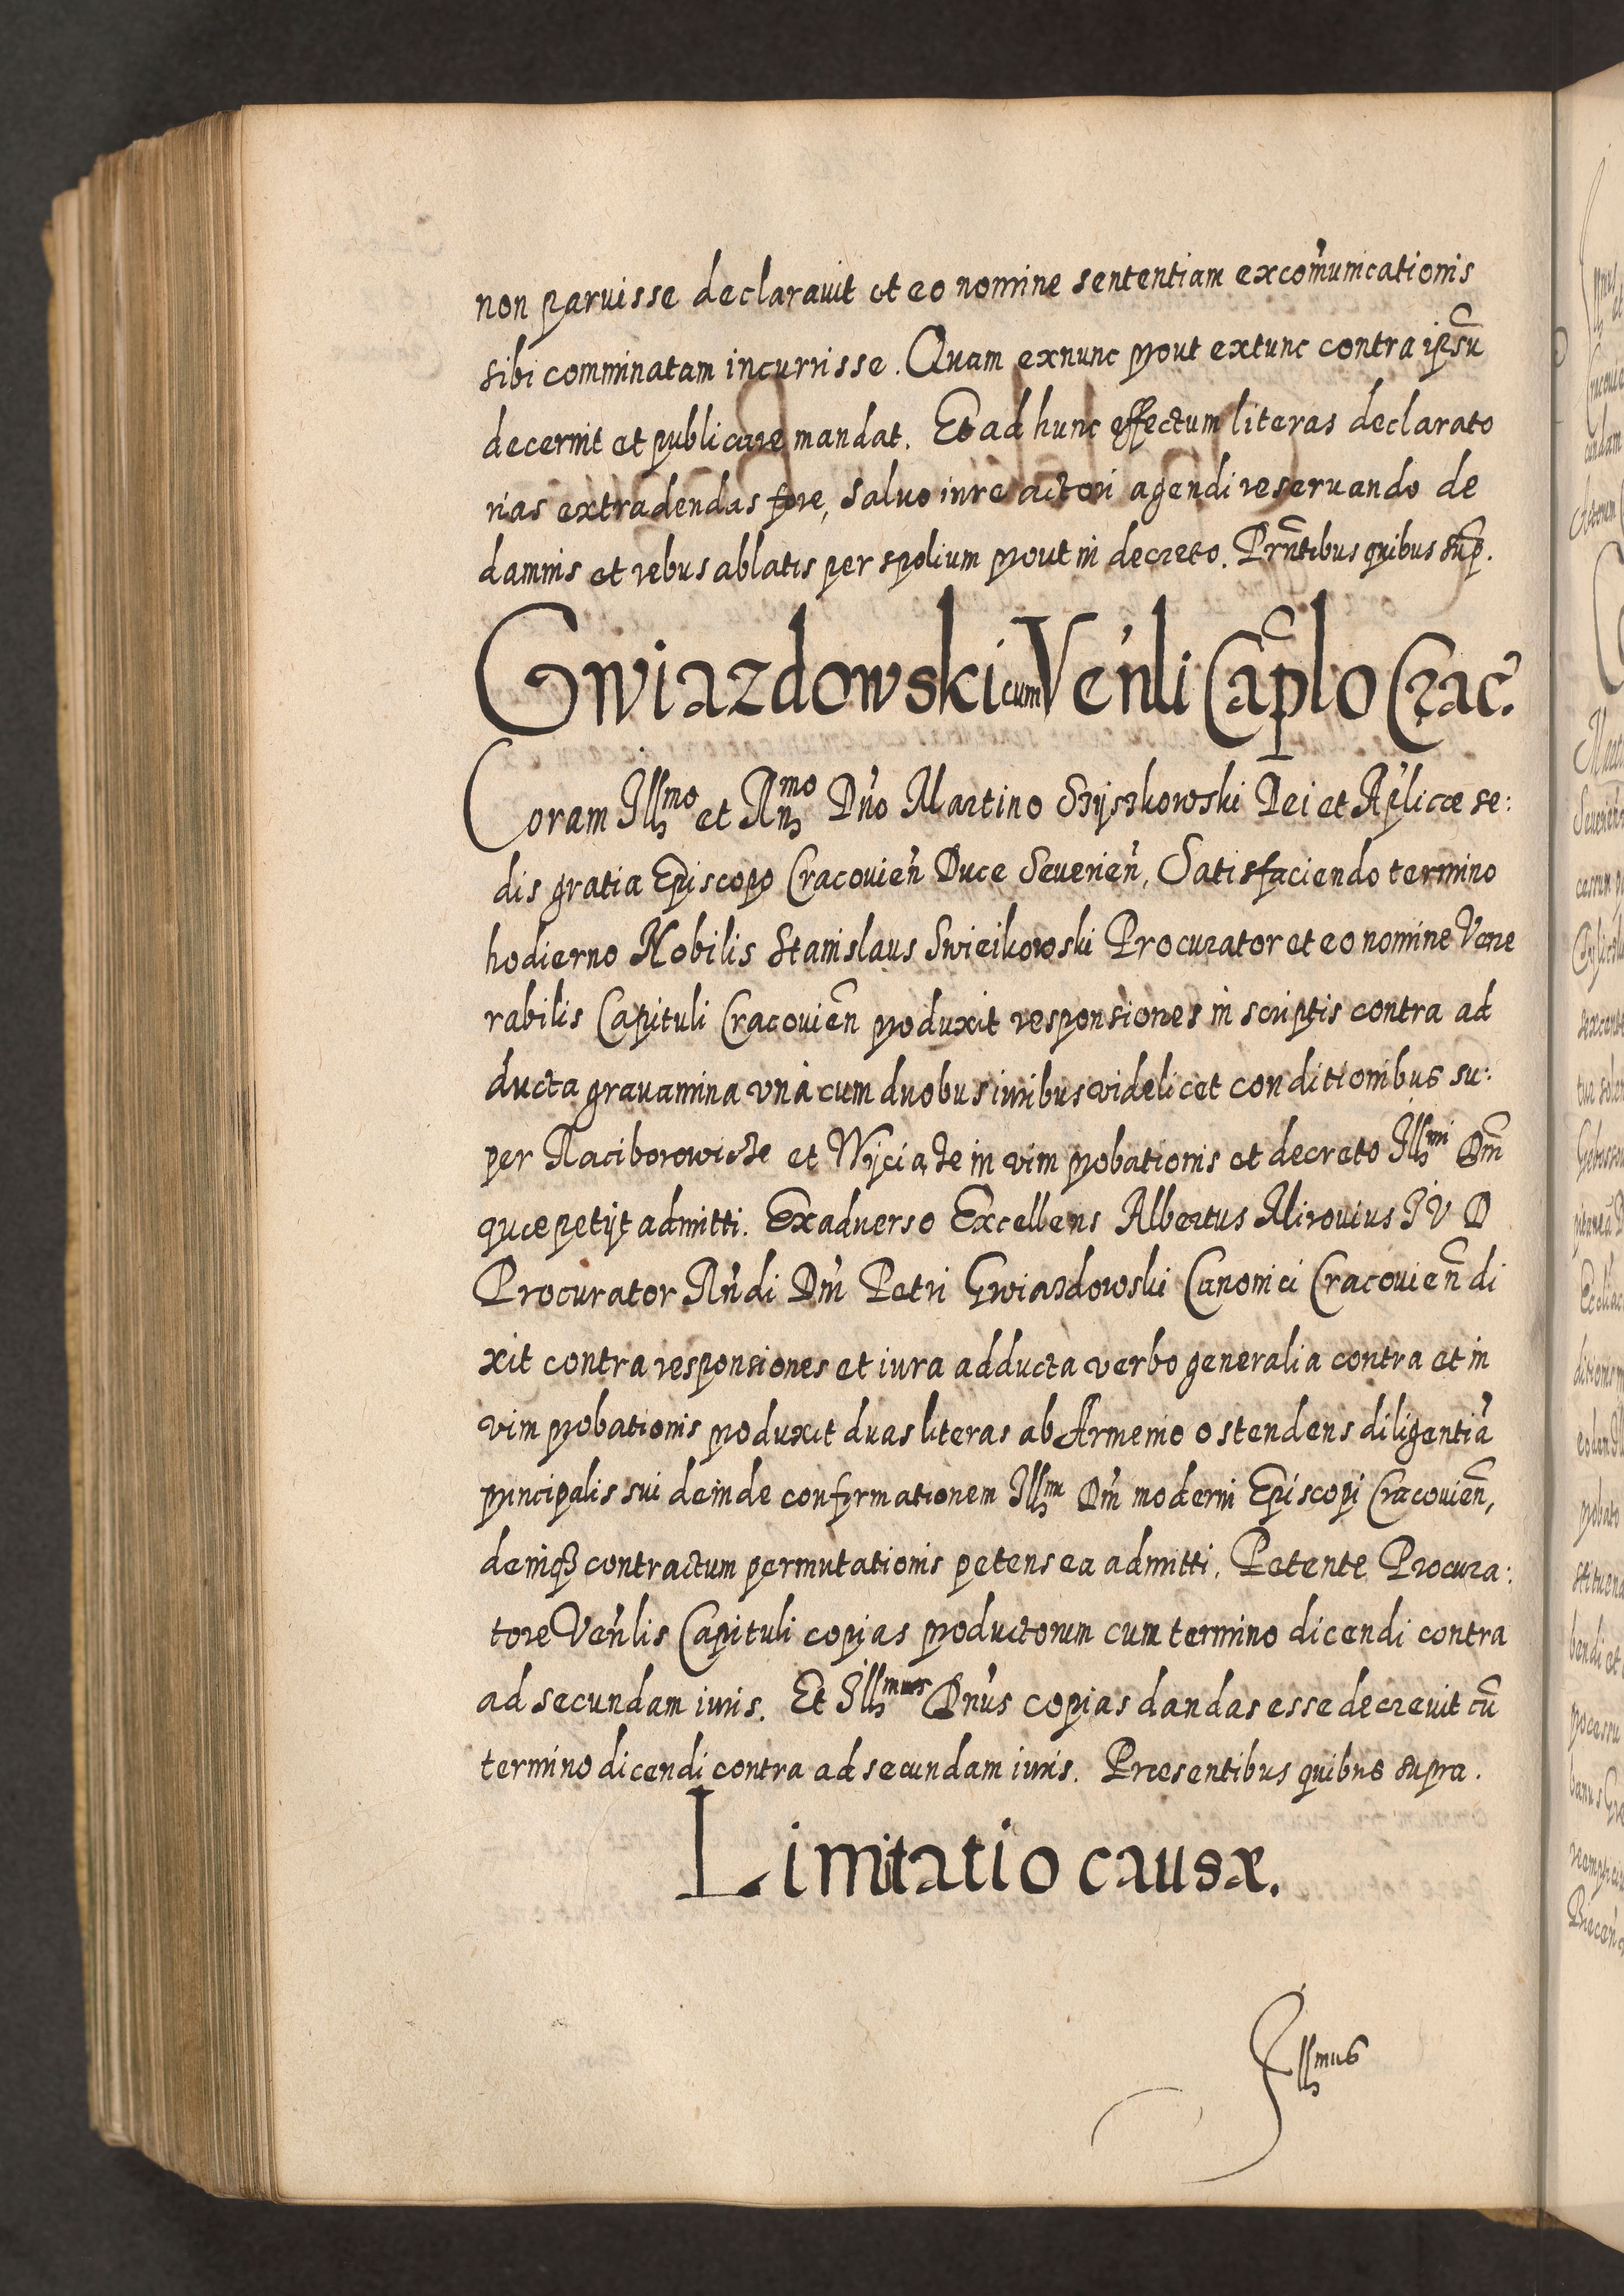 non paruisse declarauit et eo nomine sententiam excom̃unicationis
sibi comminatam incurrisse. Quam exnunc prout extunc contra ipsũ
decernit et publicare mandat. Et ad hunc effectum literas declarato
rias extradendas fore, saluo iure actori agendi reseruando de
damnis et rebus ablatis per spolium prout in decreto. Prñtibus quibus sup̃.
Gwiazdowski cum Veñli Cap̃lo Crac̃.
Coram Illmo et Rndmo Dño Martino Szyszkowski Dei et Ap̃licæ se:
dis gratia Episcopo Cracovieñ Duce Severieñ, Satisfaciendo termino
hodierno Nobilis Stanislaus Swieikowski Procurator et eo nomine Vene
rabilis Capituli Cracovieñ produxit responsiones in scriptis contra ad
ducta grauamina vnà cum duobus iuribus videlicet conditionibus su:
per Raciborowicze et Wyciąze in vim probationis et decreto Illmi Dñi
quæ petijt admitti. Ex aduerso Excellens Albertus Mirouius I V D
Procurator Rñdi Dñi Petri Gwiazdowski Canonici Cracovieñ di
xit contra responsiones et iura adducta verbo generalia contra et in
vim probationis produxit duas literas ab Armenio ostendens diligentiã
principalis sui deinde confirmationem Illmi Dñi moderni Episcopi Cracovieñ,
deniqꝫ contractum permutationis petens ea admitti. Petente Procura:
tore Veñlis Capituli copias productorum cum termino dicendi contra
ad secundam iuris. Et Illmus Dñus copias dandas esse decreuit cũ
termino dicendi contra ad secundam iuris. Præsentibus quibus supra.
Limitatio causæ.
Illmus